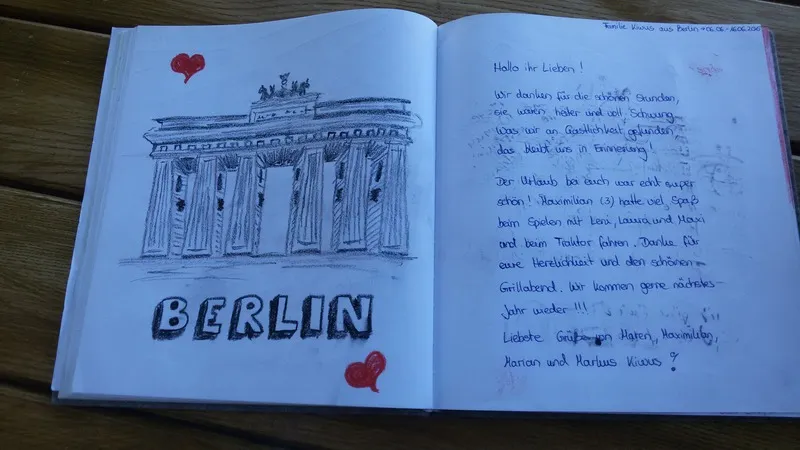 BERLIN
Familie Kiwus aus Berlin 06.06. - 16.06.
Hallo ihr Lieben!
Wir danken für die schönen Stunden,
sie waren heiter und voll Schwung
was wir an Gastlichkeit gefunden
das bleibt uns in Erinnerung!
Der Urlaub bei euch war echt super
schön! Maximilian (3) hatte viel Spaß
beim Spielen mit Leni, Laura und Maxi
und beim Traktor fahren. Danke für
eure Herzlichkeit und den schönen
Grillabend. Wir kommen gerne nächstes
Jahr wieder!!!
Liebste Grüße von Maren, Maximilian,
Marian und Markus Kiwus